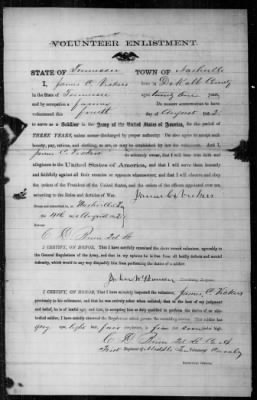 VOLUNTEER ENLISTMENT.
STATE OF Tennessee TOWN OF Nashville
I, James C Vickers born in DeKalb County
in the State of Tennessee aged twenty one years,
and by occupation a farmer Do HEREBY ACKNOWLEDGE to have
volunteered this fourth day of August 1862,
to serve as a Soldier in the Army of the United States of America, for the period of
THREE YEARS, unless sooner discharged by proper authority: Do also agree to accept such
bounty, pay, rations, and clothing, as are, or may be established by law for volunteers. And I,
James C Vickers do solemnly swear, that I will bear true faith and
allegiance to the United States of America, and that I will serve them honestly
and faithfully against all their enemies or opposers whomsoever; and that I will observe and obey
the orders of the President of the United States, and the orders of the officers appointed over me,
according to the Rules and Articles of War.
James C Vickers
Sworn and subscribed to, at Nashville
this 4th day of August 1862
I CERTIFY, ON HONOR, That I have carefully examined the above named volunteer, agreeably to
the General Regulations of the Army, and that in my opinion he is free from all bodily defects and mental
infirmity, which would in any way disqualify him from performing the duties of a soldier.
Examining Surgeon.
I CERTIFY, ON HONOR, That I have minutely inspected the volunteer, James C Vickers
previously to his enlistment, and that he was entirely sober when enlisted; that to the best of my judgment
and belief, he is of lawful age; and that, in accepting him as duly qualified to perform the duties of an able-
bodied soldier, I have strictly observed the Regulations which govern the recruiting service. This soldier has
grey eyes, light hair, fair complexion, is feet inches high.
First Regiment of Middle Tennessee Volunteers Cavalry
RECRUITING OFFICER.